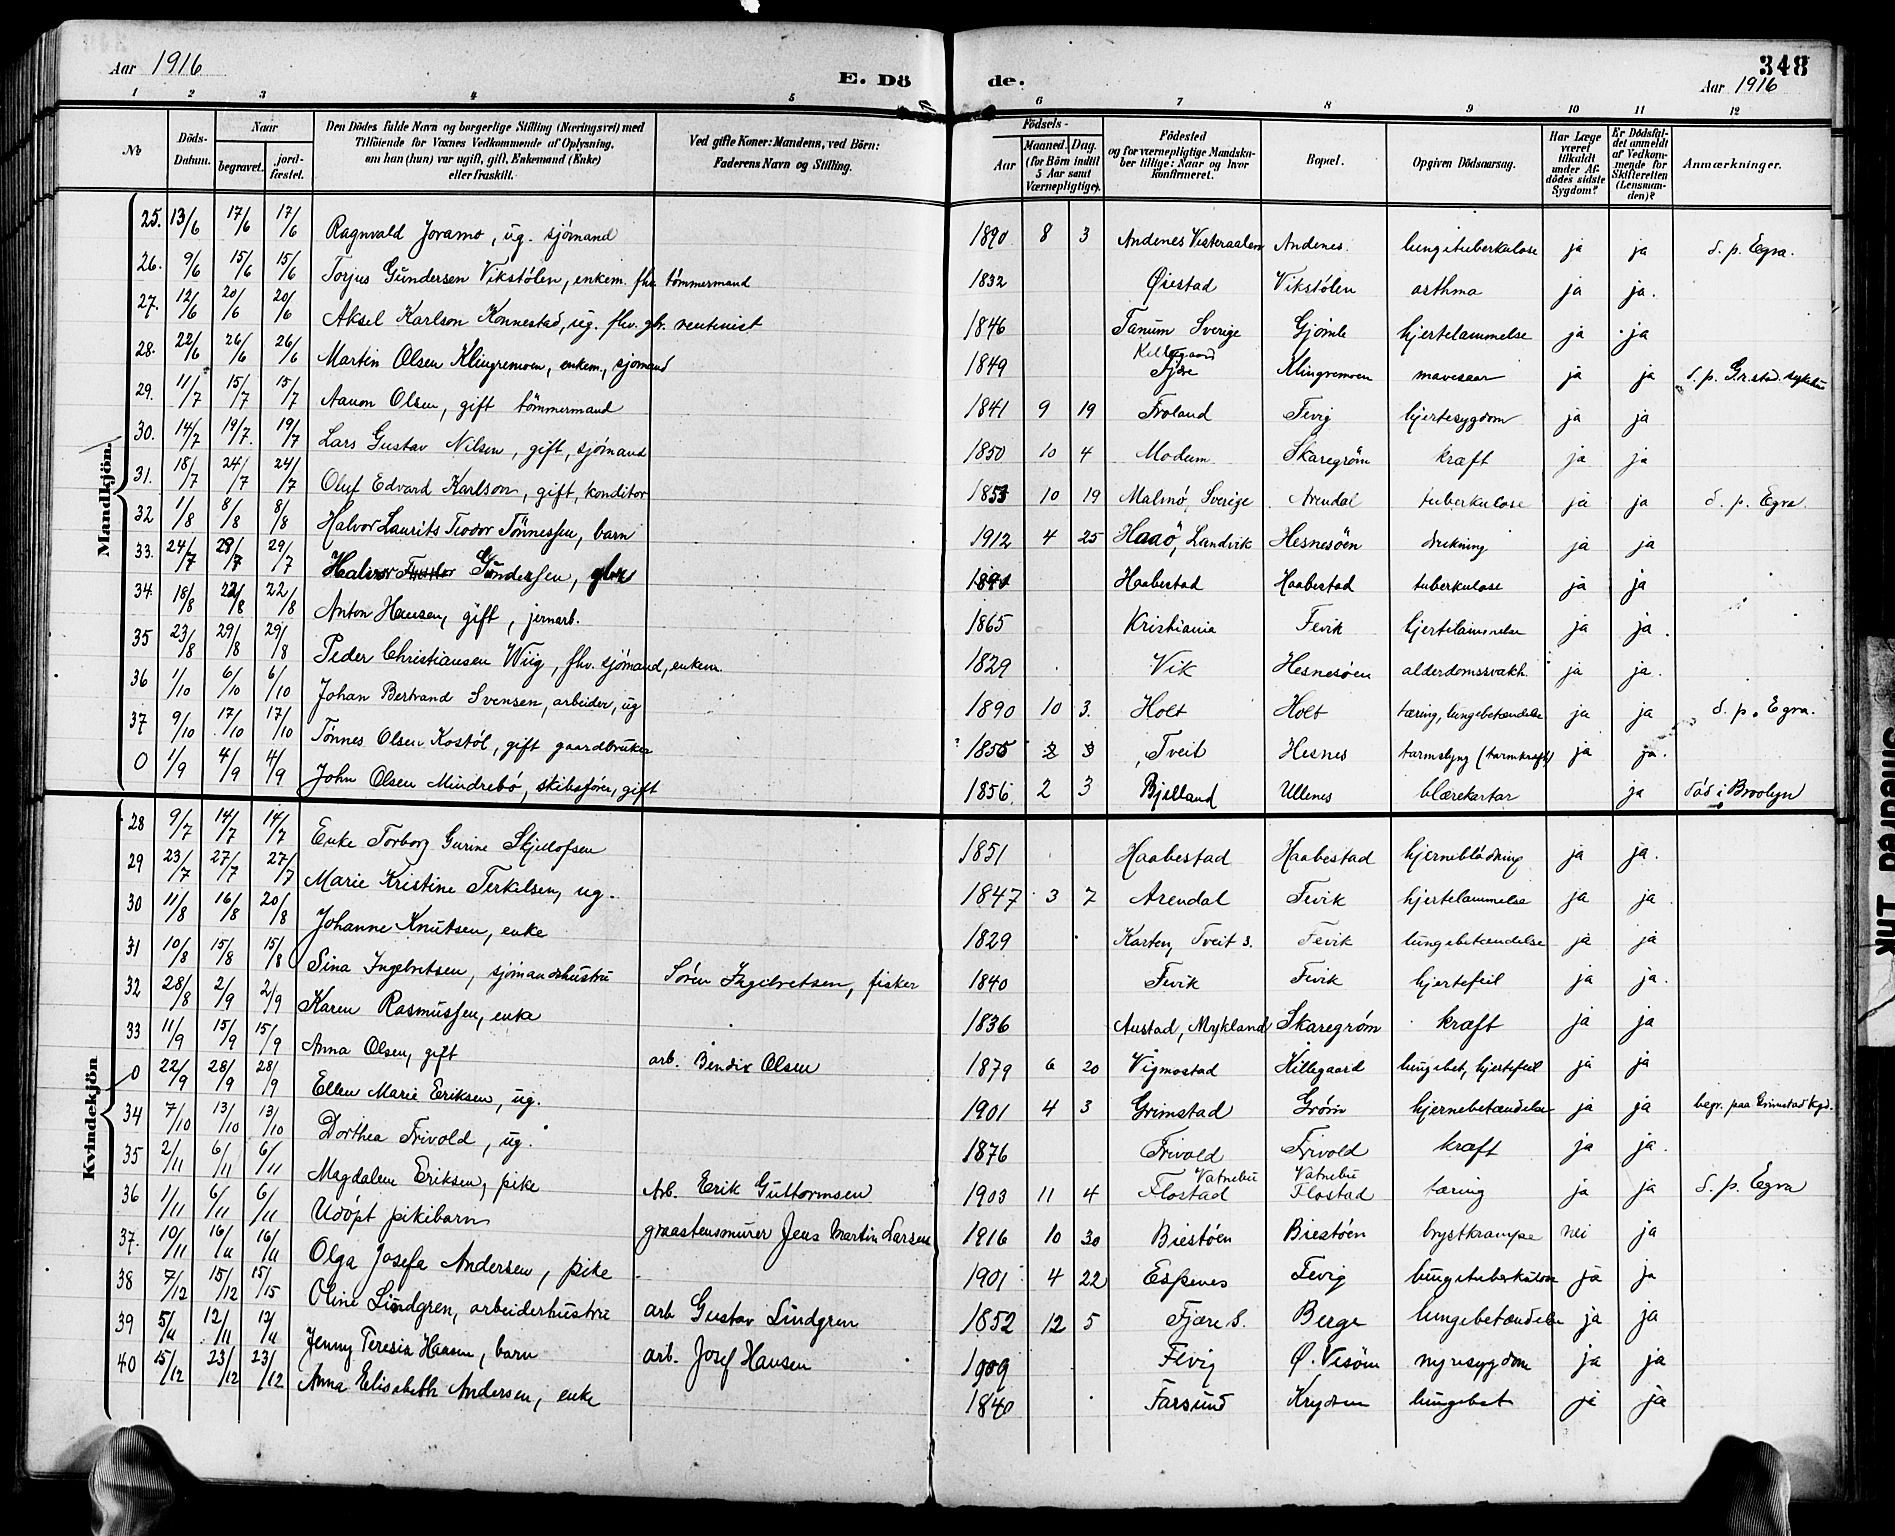 Aar 1916
E. Dö de.
348
Aar 1916
1 2 3 4 5 6 7 8 9 10 11 12
No
Döds-Datum.
Naar
begravet.
jord-fæstet.
Den Dödes fulde Navn og borgerlige Stilling (Næringsvei) med Tilföiende for Voxnes Vedkommende af Oplysning, om han (hun) var ugift, gift, Enkemand (Enke) eller fraskilt.
Ved gifte Koner: Mandens, ved Börn: Faderens Navn og Stilling.
Födsels-
Aar
Maaned. Dag. (for Börn indtil 5 Aar samt Værnepligtige).
Födested og for værnepligtige Mandskaber tillige: Naar og hvor konfirmeret.
Bopæl.
Opgiven Dödsaarsag.
Har Læge været tilkaldt under Afdödes sidste Sygdom?
Er Dödsfaldet anmeldt af Vedkommende for Skifteretten (Lensmanden)?
Anmærkninger.
Mandkjön.
25. 13/6 17/6 17/6 Ragnvald Joramo, ug. sjömand 1890 8 3 Andenes Vesteraalen Andenes. lungetuberkulose ja ja d. p. Egra.
26. 9/6 15/6 15/6 Torjus Gundersen Vikstölen, enkem. fhv. tömmermand 1832 Öiestad Vikstölen asthma ja ja.
27. 12/6 20/6 20/6 Aksel Karlson Konnestad, ug. fhv. rentenist 1846 Tanum Sverige Gjömle hjertelammelse ja ja
28. 22/6 26/6 26/6 Martin Olsen Klingremoen, enkem., sjömand 1849 Fjære Klingremoen mavesaar ja ja d. p. Gr.stad. sykehus
29. 11/7 15/7 15/7 Aanon Olsen, gift tömmermand 1841 9 19 Froland Fevig hjertesygdom ja ja
30. 14/7 19/7. 19/7 Lars Gustav Nilsen, gift, sjömand 1850 10 4 Modum Skaregröm kræft ja ja
31. 18/7 24/7 24/7 Oluf Edvard Karlson, gift, konditor 1853 10 19 Malmö, Sverige Arendal tuberkulose ja ja d. p. Egra
32 1/8 8/8 8/8 Halvor Laurits Teodor Tönnessen, barn 1912 4 25 Haaö, Landvik Hesnesöen drukning ja ja
33. 24/7 29/7 29/7 Halvor Gundersen, Haabestad Haabestad tuberkulose ja ja
34. 18/8 22/8 22/8 Anton Hansen, gift, jernarb. 1865 Kristiania Fevik hjertelammelse ja ja.
35 23/8 29/8 29/8 Peder Christiansen Wiig, fhv. sjömand, enkem. 1829 Vik Hesnesöen alderdomssvakh. ja ja.
36 1/10 6/10 6/10 Johan Bertrand Svensen, arbeider, ug 1890 10 3. Holt Holt tæring, lungebetændelse ja ja d. p. Egra.
37 9/10 17/10 17/10 Tönnes Olsen Kostöl, gift gaardbruker 1855 2 3 Tveit Hesnes tarmslyng (tarmkræft) ja ja.
0 1/9 4/9 4/9 John Olsen Mindrebö, skibsförer, gift 1856. 2 3 Bjelland Ullenes blærekatar ja död i Broolyn
Kvindekjön
28 9/7 14/7 14/7 Enke Torborg Gurine Skjellofsen 1851 Haabestad Haabestad hjerneblödning ja ja.
29 23/7 27/7 27/7 Marie Kristine Terkelsen, ug. 1847 3 7 Arendal Fevik hjertelammelse ja ja
30 11/8 16/8 20/8 Johanne Knutsen, enke 1829 Karten, Tveit s. Fevik lungebetændelse ja ja
31 10/8 15/8 15/8 Sina Ingebretsen, sjömandshustru Sören Ingebretsen, fisker 1840 Fevik Fevik hjertefeil ja ja.
32 28/8 2/9 2/9 Karen Rasmussen, enke 1836 Austad, Mykland Skaregröm kræft ja ja
33 11/9 15/9 15/9 Anna Olsen, gift arb. Bendix Olsen 1879 6 20 Vigmostad Killegaard lungebet, hjertefeil ja ja
0 22/9 28/9 28/9 Ellen Marie Eriksen, ug. 1901 4 3 Grimstad Gröm hjernebetændelse ja ja begr. paa Grimstad Kgd.
34 7/10 13/10 13/10 Dorthea Frivold, ug. 1876 Frivold Frivold kræft ja ja.
35 2/11 6/11 6/11 Magdalene Eriksen, pike Arb. Erik Guttormsen 1903 11 4 Vatnebu Flostad Vatnebu Flostad tæring ja ja d. p. Egra
36 1/11 6/11 6/11 Udöpt pikebarn graastensmurer Jens Martin Larsen 1916 10 30 Biestöen Biestöen brystkrampe nei ja
37. 10/11 16/11 16/11 Olga Josefa Andersen, pike 1901 4 22 Espenes Fevig lungetuberkulose ja ja
38 7/12 15/12 15/15 Oline Lindgren, arbeiderhustru arb Gustav Lindgren 1852 12 5 Fjære S. Berge lungebetændelse ja ja
39 5/11 12/11 12/11 Jenny Teresia Hansen, barn arb. Josef Hansen 1909 Fevig Ö. Vesöm nyresygdom ja ja
40 15/12 23/12 23/12 Anna Elisabeth Andersen, enke 1840 Farsund lungebet ja ja